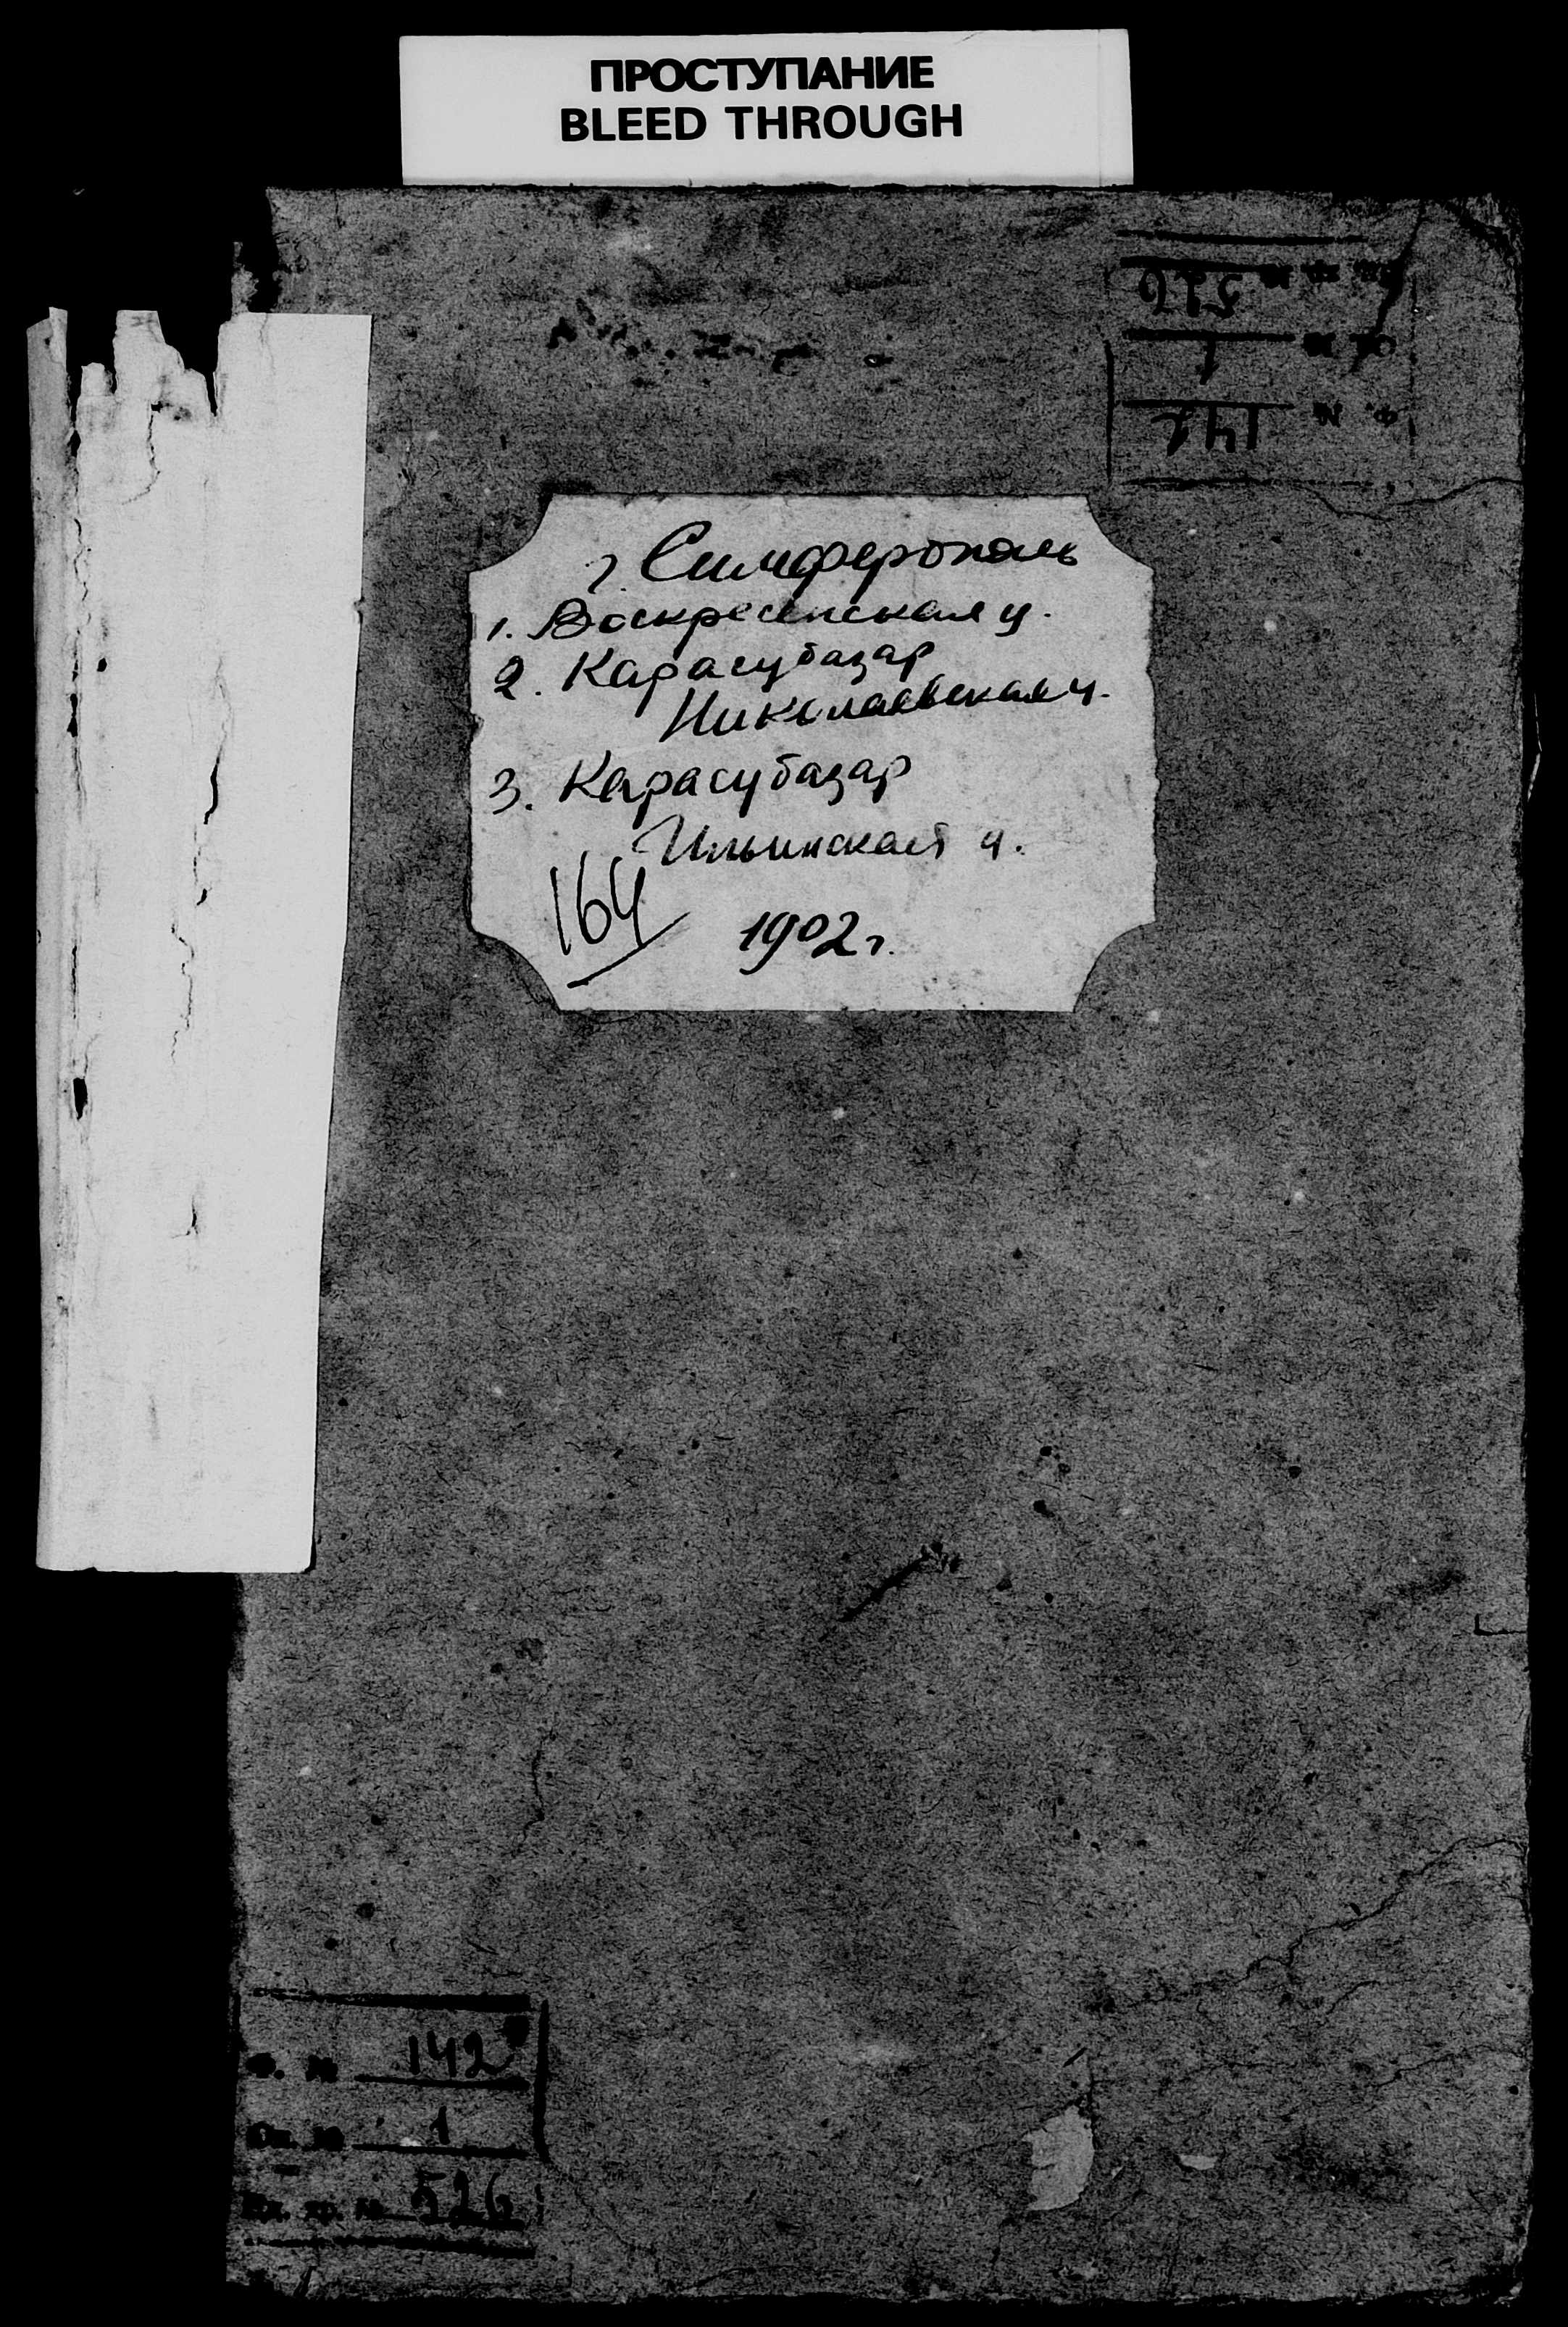 ПРОСТУПАНИЕ
BLEED THROUGH
г. Симферополь
1. Воскресенская ц.
2. Карасубазар
Николаевская ц.
3. Карасубазар
Ильинская ц.
164
1902 г.
Ф. № 142
Оп. № 1
Ед. хр. № 526
Ф. № 142
Оп. № 1
Ед. хр. № 526